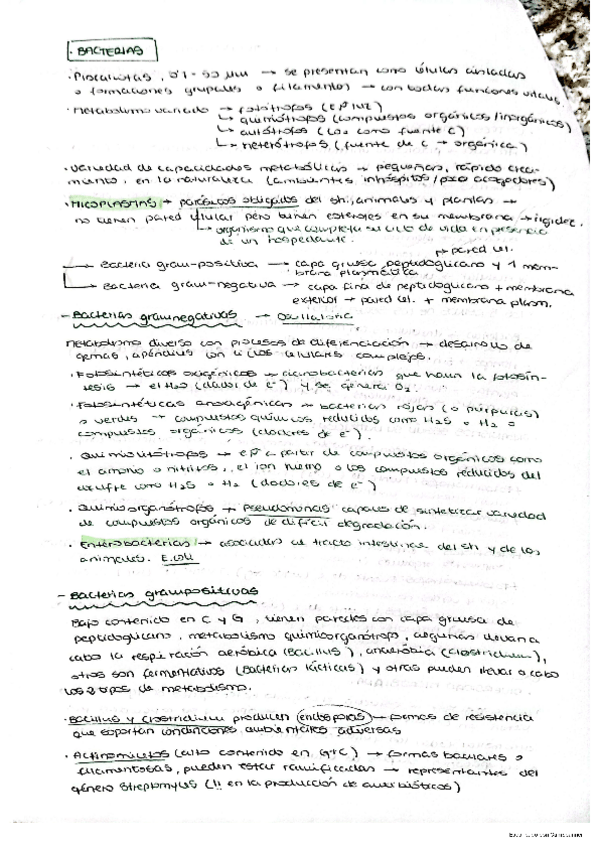 · BACTERIAS
· Procariotas, 0'1 - 50 µm → se presentan como células aisladas
o formaciones grupales o filamentos → con todas funciones vitales.
· Metabolismo variado → fotótrofos (Eª luz)
↳ quimiótrofos (compuestos orgánicos/inorgánicos)
↳ autótrofos (CO2 como fuente C)
↳ heterótrofos (fuente de C → orgánica)
· Variedad de capacidades metabólicas → pequeñas, rápido creci-
miento, en la naturaleza (ambientes inhóspitos/poco acogedores)
· Micoplasmas → parásitos obligados del sh, animales y plantas →
no tienen pared celular pero tienen esteroles en su membrana → rigidez.
↳ organismo que completa su ciclo de vida en presencia
de un hospedante.
↱ pared cel.
→ Bacteria gram-positiva → capa gruesa peptidoglicano y 1 mem-
brana plasmática
→ Bacteria gram-negativa → capa fina de peptidoglicano + membrana
exterior → pared cel. + membrana plasm.
- Bacterias gramnegativas → Oscillatoria
Metabolismo diverso con procesos de diferenciación → desarrollo de
gemas, apéndices con ciclos celulares complejos.
· Fotosintéticas oxigénicas → cianobacterias que hacen la fotosín-
tesis → el H2O (dador de e-) y se genera O2.
· Fotosintéticas anoxigénicas → bacterias rojas (o púrpuras)
o verdes → compuestos químicos reducidos como H2S o H2 o
compuestos orgánicos (dadores de e-).
· Quimiolitótrofos → eª a partir de compuestos orgánicos como
el amonio o nitritos, el ion ferroso o los compuestos reducidos del
azufre como H2S o H2 (dadores de e-)
· Quimiorganótrofos → Pseudomonas capaces de sintetizar variedad
de compuestos orgánicos de difícil degradación.
· Enterobacterias → asociadas al tracto intestinal del sh y de los
animales. E.coli
- Bacterias grampositivas
Bajo contenido en C y G, tienen paredes con capa gruesa de
peptidoglicano, metabolismo quimiorganótrofo, algunas llevan a
cabo la respiración aeróbica (Bacillus), anaeróbica (Clostridium),
otras son fermentativas (Bacterias lácticas) y otras pueden llevar a cabo
los 2 tipos de metabolismo.
· Bacillus y Clostridium producen endosporas → formas de resistencia
que soportan condiciones ambientales adversas
· Actinomicetos (alto contenido en G+C) → formas bacilares o
filamentosas, pueden estar ramificadas → representantes del
género Streptomyces (!! en la producción de antibióticos)